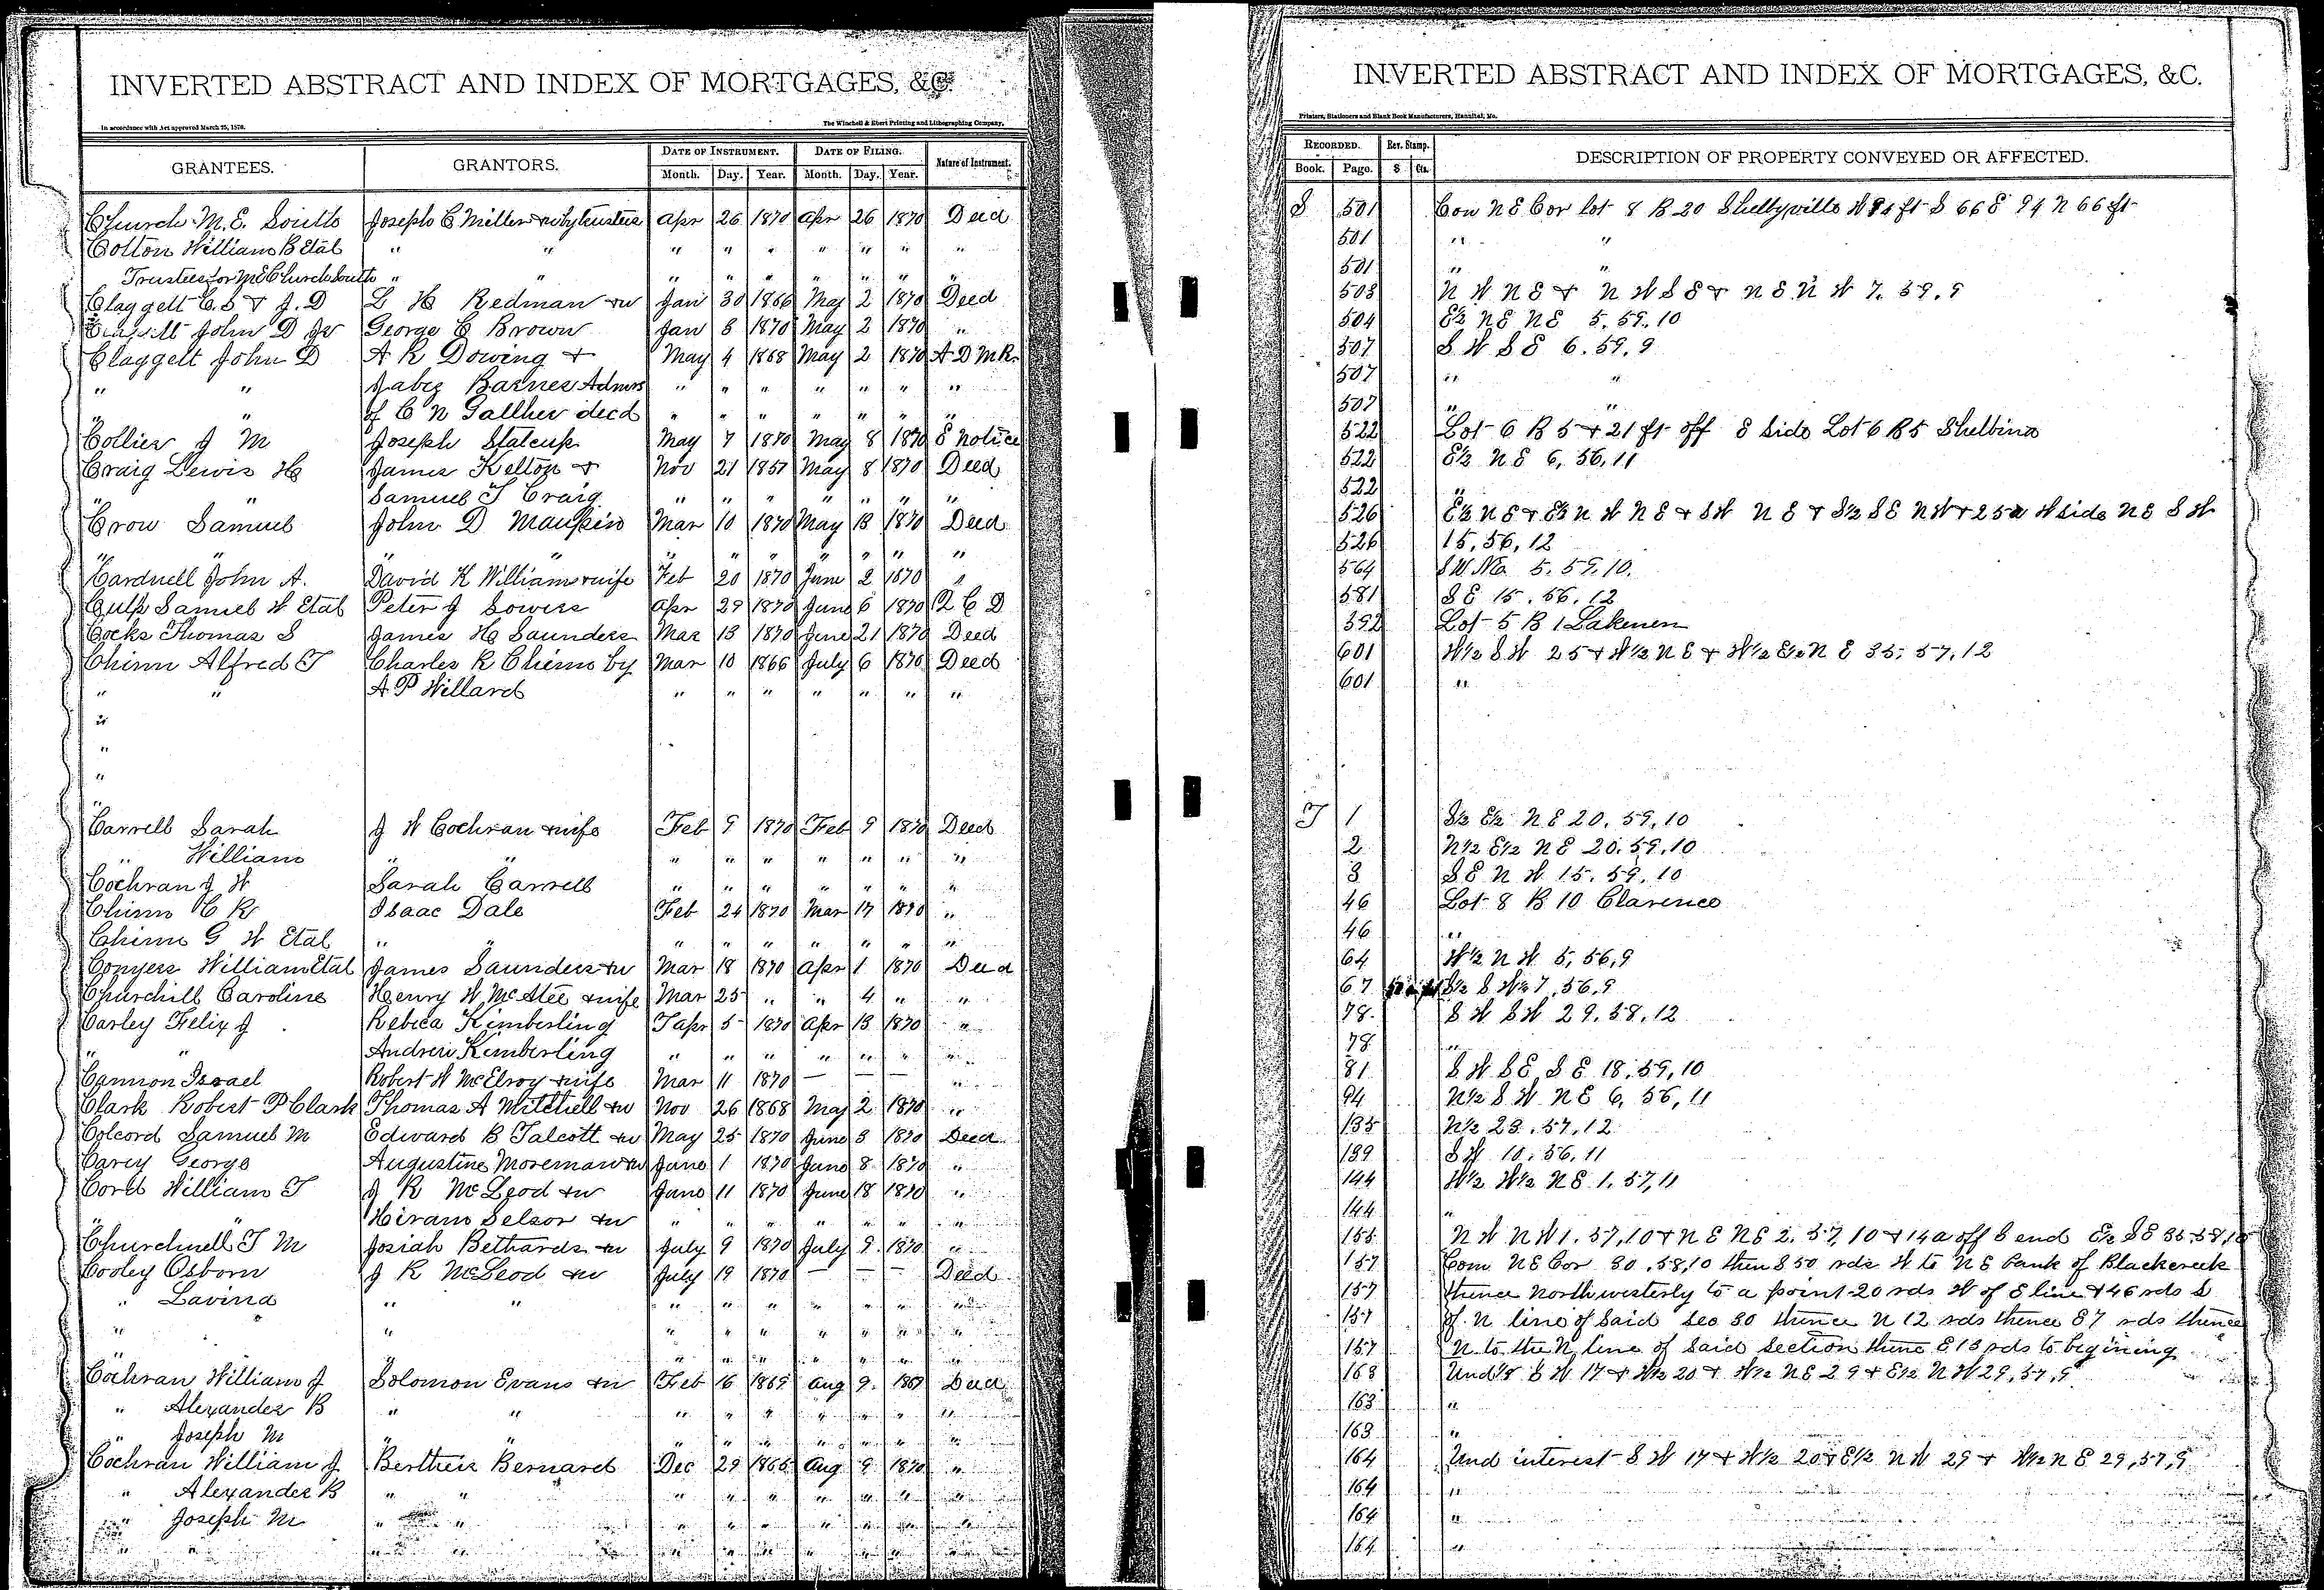 INVERTED ABSTRACT AND INDEX OF MORTGAGES, &C.
In accordance with Act approved March 25, 1870.
The Winchell & Ebert Printing and Lithographing Company,
GRANTEES. GRANTORS. DATE OF INSTRUMENT. DATE OF FILING. Nature of Instrument.
Month. Day. Year. Month. Day. Year.
Church M. E. South Joseph C Miller by trustees Apr 26 1870 Apr 26 1870 Deed
Cotton William B Etal " " " " " " " " "
Trustees for M E Church South " " " " " " " " "
Claggett C. S & J. D L H Redman & w Jan 30 1866 May 2 1870 Deed
John D Jr George C Brown Jan 8 1870 May 2 1870 "
Claggett John D A R Dowing & May 4 1868 May 2 1870 A D M R.
" " Jabez Barnes Admrs " " " " " " "
" " of C N Gallher decd " " " " " " "
Collier J M Joseph Stalcup May 7 1870 May 8 1870 S Notice
Craig Lewis H James Kelton & Nov 21 1857 May 8 1870 Deed
" " Samuel T Craig " " " " " " "
Crow Samuel John D Maupin Mar 10 1870 May 13 1870 Deed
" " " " " " " " " " "
Cardwell John A. David K Williams & wife Feb 20 1870 June 2 1870 "
Culp Samuel W Etal Peter J Sowers Apr 29 1870 June 6 1870 Q C D
Cocks Thomas S James H Saunders Mar 13 1870 June 21 1870 Deed
Chinn Alfred T Charles R Chinn by Mar 10 1866 July 6 1870 Deed
" " A P Willard " " " " " " "
"
"
"
"
Carrell Sarah J W Cochran & wife Feb 9 1870 Feb 9 1870 Deed
" William " " " " " " " " "
Cochran J W Sarah Carrell " " " " " " "
Chinn C R Isaac Dale Feb 24 1870 Mar 17 1870 "
Chinn G W Etal " " " " " " " " "
Conyers William Etal James Saunders & w Mar 18 1870 Apr 1 1870 Deed
Churchill Caroline Henry W McAtee & wife Mar 25 " " 4 " "
Carley Felix J Rebica Kimberling Apr 5 1870 Apr 13 1870 "
" " Andrew Kimberling " " " " " " "
Cannon Israel Robert W McElroy & wife Mar 11 1870 — — — "
Clark Robert P Clark Thomas A Mitchell & w Nov 26 1868 May 2 1870 "
Colcord Samuel M Edward B Talcott & w May 25 1870 June 3 1870 Deed
Carey George Augustine Moreman & w June 1 1870 June 8 1870 "
Cord William T J R McLeod & w June 11 1870 June 18 1870 "
" " Hiram Selsor & w " " " " " " "
Churchwell T M Josiah Bethards & w July 9 1870 July 9. 1870 "
Cooley Osborn J R McLeod & w July 19 1870 — — — Deed
" Lavina " " " " " " " " "
" " " " " " " " "
" " " " " " " "
Cochran William J Solomon Evans & w Feb 16 1869 Aug 9. 1869 Deed
" Alexander B " " " " " " " " "
" Joseph M " " " " " " " " "
Cochran William J Bertheis Bernard Dec 29 1866 Aug 9 1870 "
" Alexander B " " " " " " " " "
" Joseph M " " " " " " " " "
" " " " " " " " " " "
INVERTED ABSTRACT AND INDEX OF MORTGAGES, &C.
Printers, Stationers and Blank Book Manufacturers, Hannibal, Mo.
RECORDED. Rev. Stamp. DESCRIPTION OF PROPERTY CONVEYED OR AFFECTED.
Book. Page. $ Cts.
S 501 Com N E Cor lot 8 B 20 Shelbyville W 94 ft S 66 E 94 N 66 ft
501 " "
501 " "
503 N W N E & N W S E & N E N W 7. 59. 9
504 E½ N E N E 5. 59. 10
507 S W S E 6. 59. 9
507 " "
507 " "
522 Lot 6 B 5 & 21 ft off S side Lot 6 B 5 Shelbina
522 E½ N E 6, 56, 11
522 "
526 E½ N E & E½ N W N E & S W N E & S½ S E N W & 25 a W side N E S W
526 15, 56, 12
564 S W N E 5. 59. 10.
581 S E 15. 56. 12
592 Lot 5 B 1 Lakenen
601 W½ S W 25 & W½ N E & W½ E½ N E 35. 57. 12
601 "
T 1 S½ E½ N E 20. 59, 10
2 N½ E½ N E 20. 59, 10
3 S E N W 15. 59, 10
46 Lot 8 B 10 Clarence
46 "
64 W½ N W 5, 56, 9
67 S½ S W 7, 56, 9
78. S W S W 29. 58, 12
78 "
81 S W S E S E 18. 59, 10
94 N½ S W N E 6, 56, 11
135 N½ 23. 57. 12
139 S W 10. 56. 11
144 W½ W½ N E 1. 57, 11
144 "
155 N W N W 1. 57, 10 & N E N E 2. 57, 10 & 14 a off S end E½ S E 35. 58, 10
157 Com N E Cor 30, 58, 10 then S 50 rds W to N E bank of Black creek
157 thence North westerly to a point 20 rds W of E line & 46 rds S
157 of N line of Said Sec 30 thence N 12 rds thence E 7 rds thence
157 N to the N line of Said Section thence E 13 rds to begining
163 Und ⅓ S W 17 & W½ 20 & W½ N E 29 & E½ N W 29, 57, 9
163 "
163 "
164 Und interest S W 17 & W½ 20 & E½ N W 29 & W½ N E 29, 57, 9
164 "
164 "
164 "